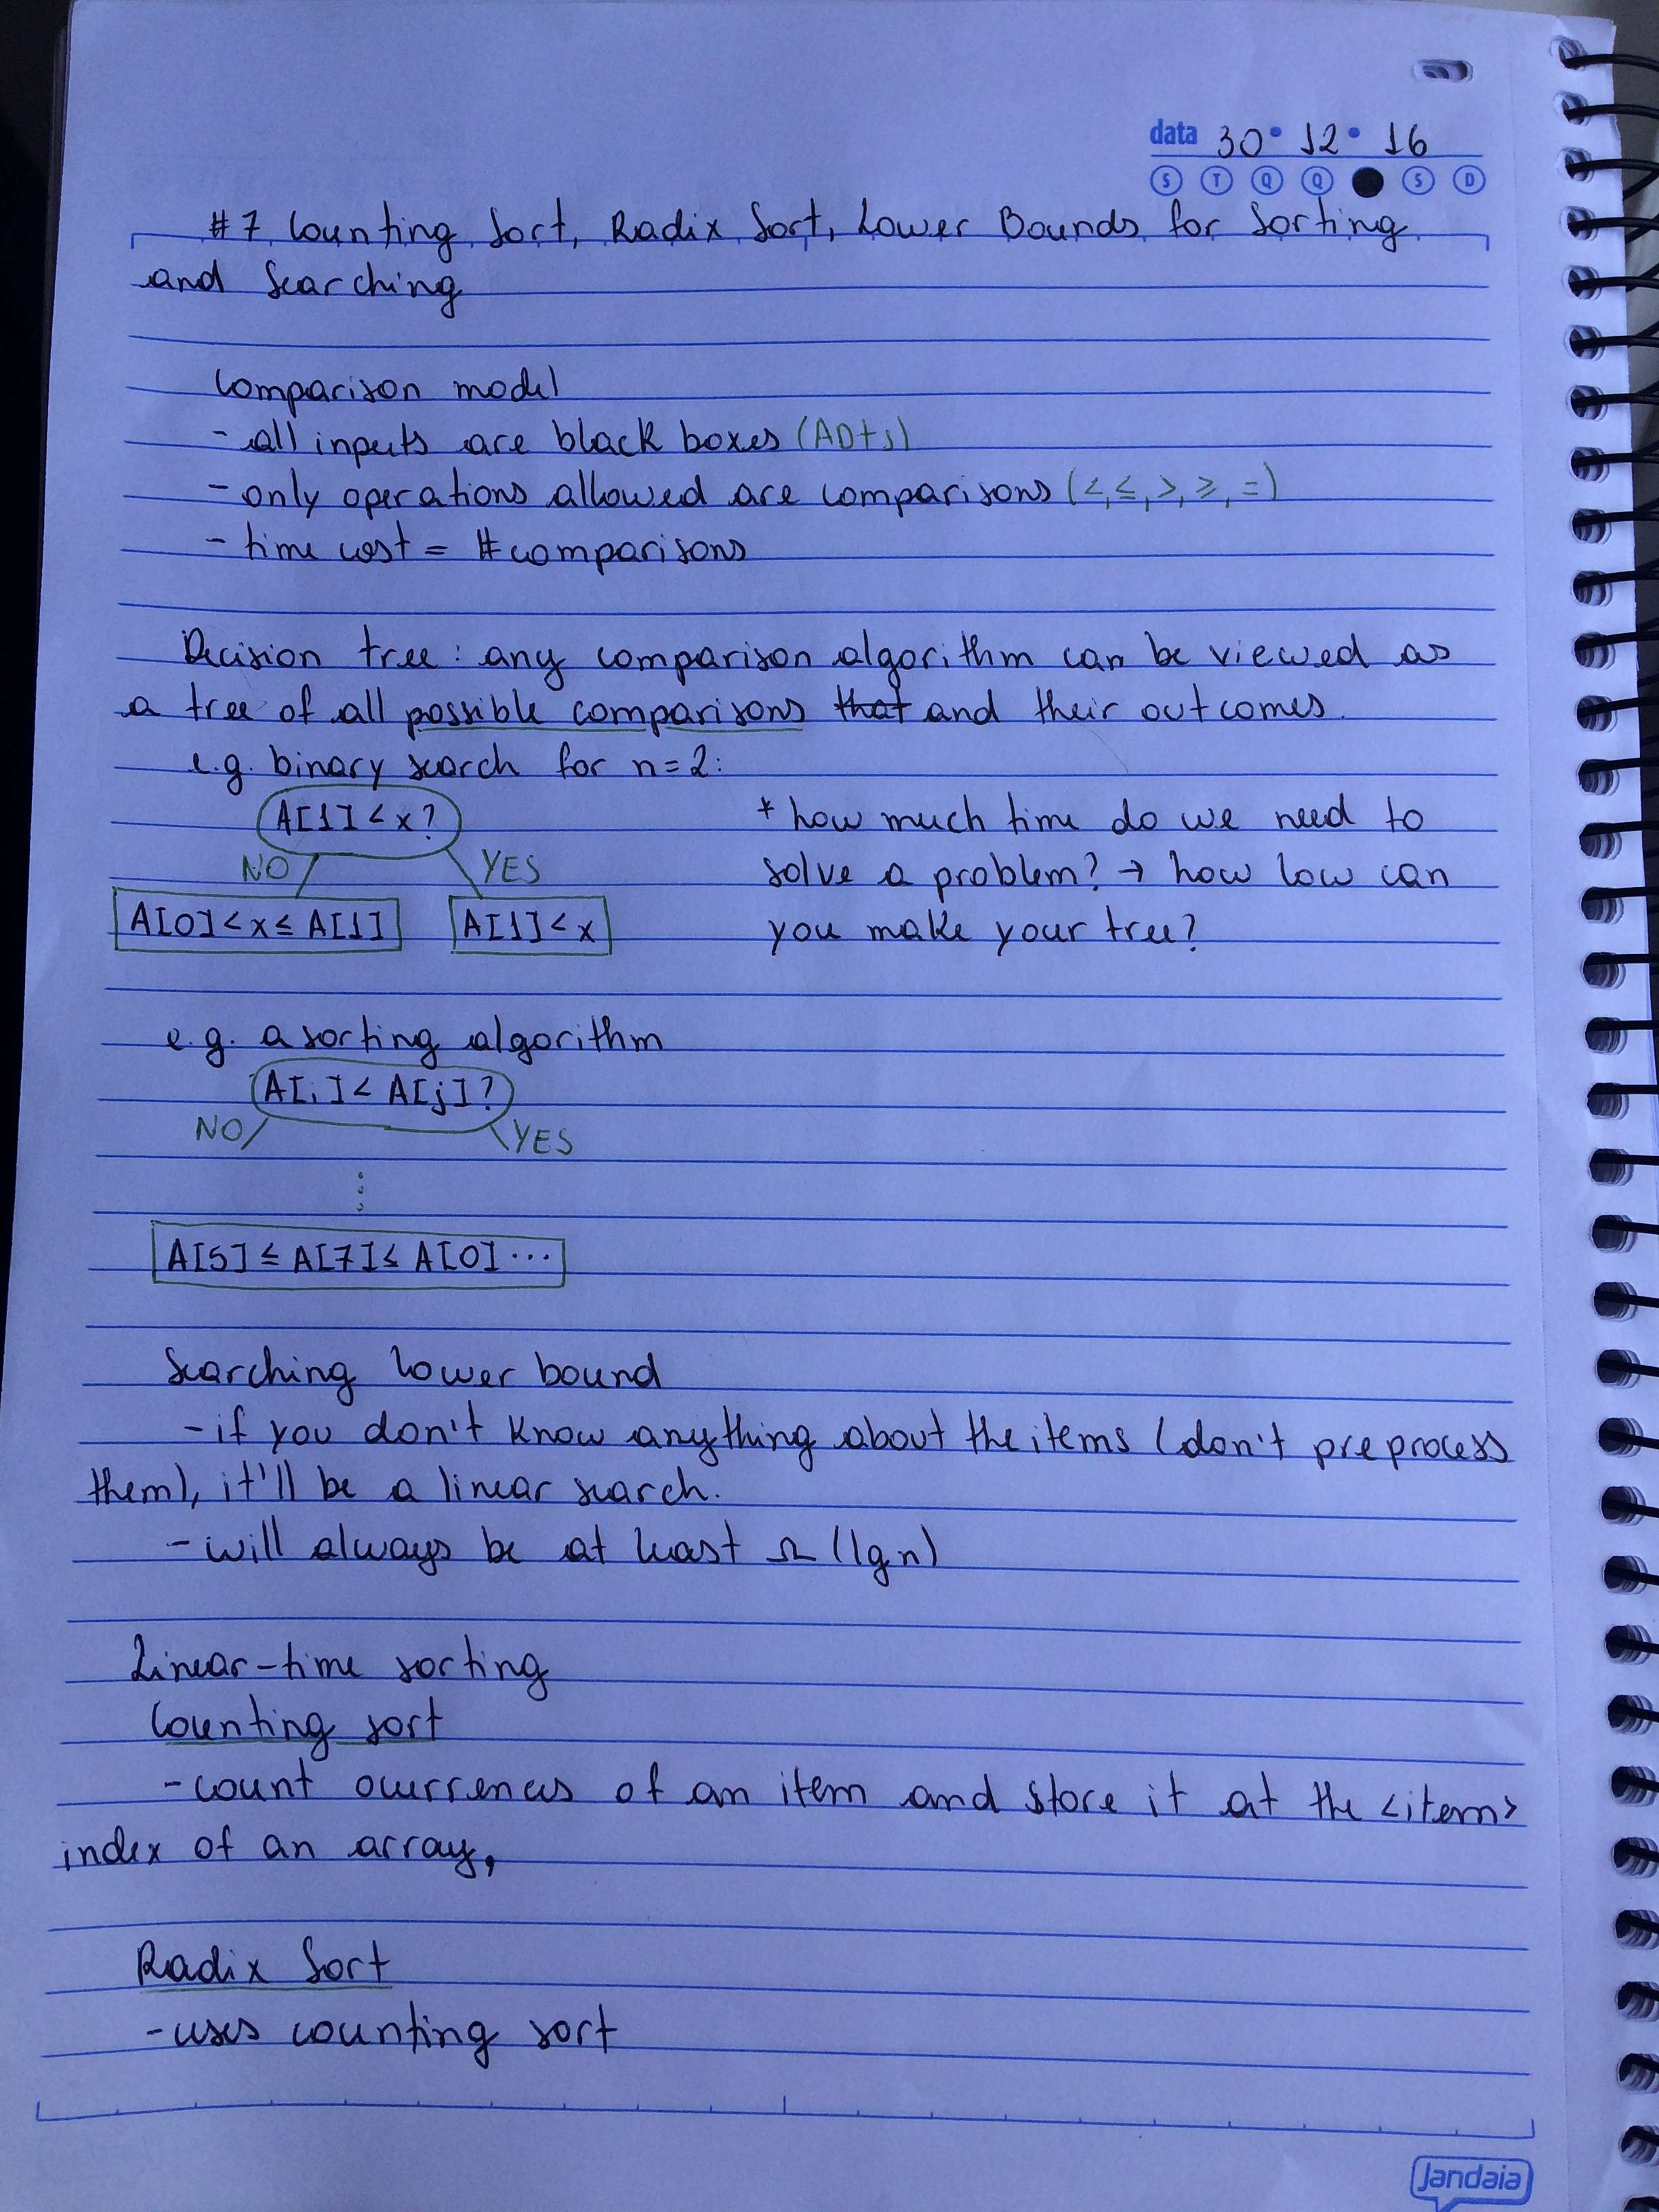 data 30 • 12 • 16
S T Q Q S D
#7 Counting Sort, Radix Sort, Lower Bounds for Sorting
and Searching
Comparison model
- all inputs are black boxes (ADTs)
- only operations allowed are comparisons (<, ≤, >, ≥, =)
- time cost = # comparisons
Decision tree: any comparison algorithm can be viewed as
a tree of all possible comparisons that and their outcomes.
e.g. binary search for n=2:
A[1] < x?
NO YES
A[0] < x ≤ A[1] A[1] < x
* how much time do we need to
solve a problem? → how low can
you make your tree?
e.g. a sorting algorithm
A[i] < A[j]?
NO YES
⋮
A[5] ≤ A[7] ≤ A[0] ...
Searching lower bound
- if you don't know anything about the items (don't preprocess
them), it'll be a linear search.
- will always be at least Ω (lg n)
Linear-time sorting
Counting sort
- count ocurrences of an item and store it at the <item>
index of an array,
Radix Sort
- uses counting sort
Jandaia